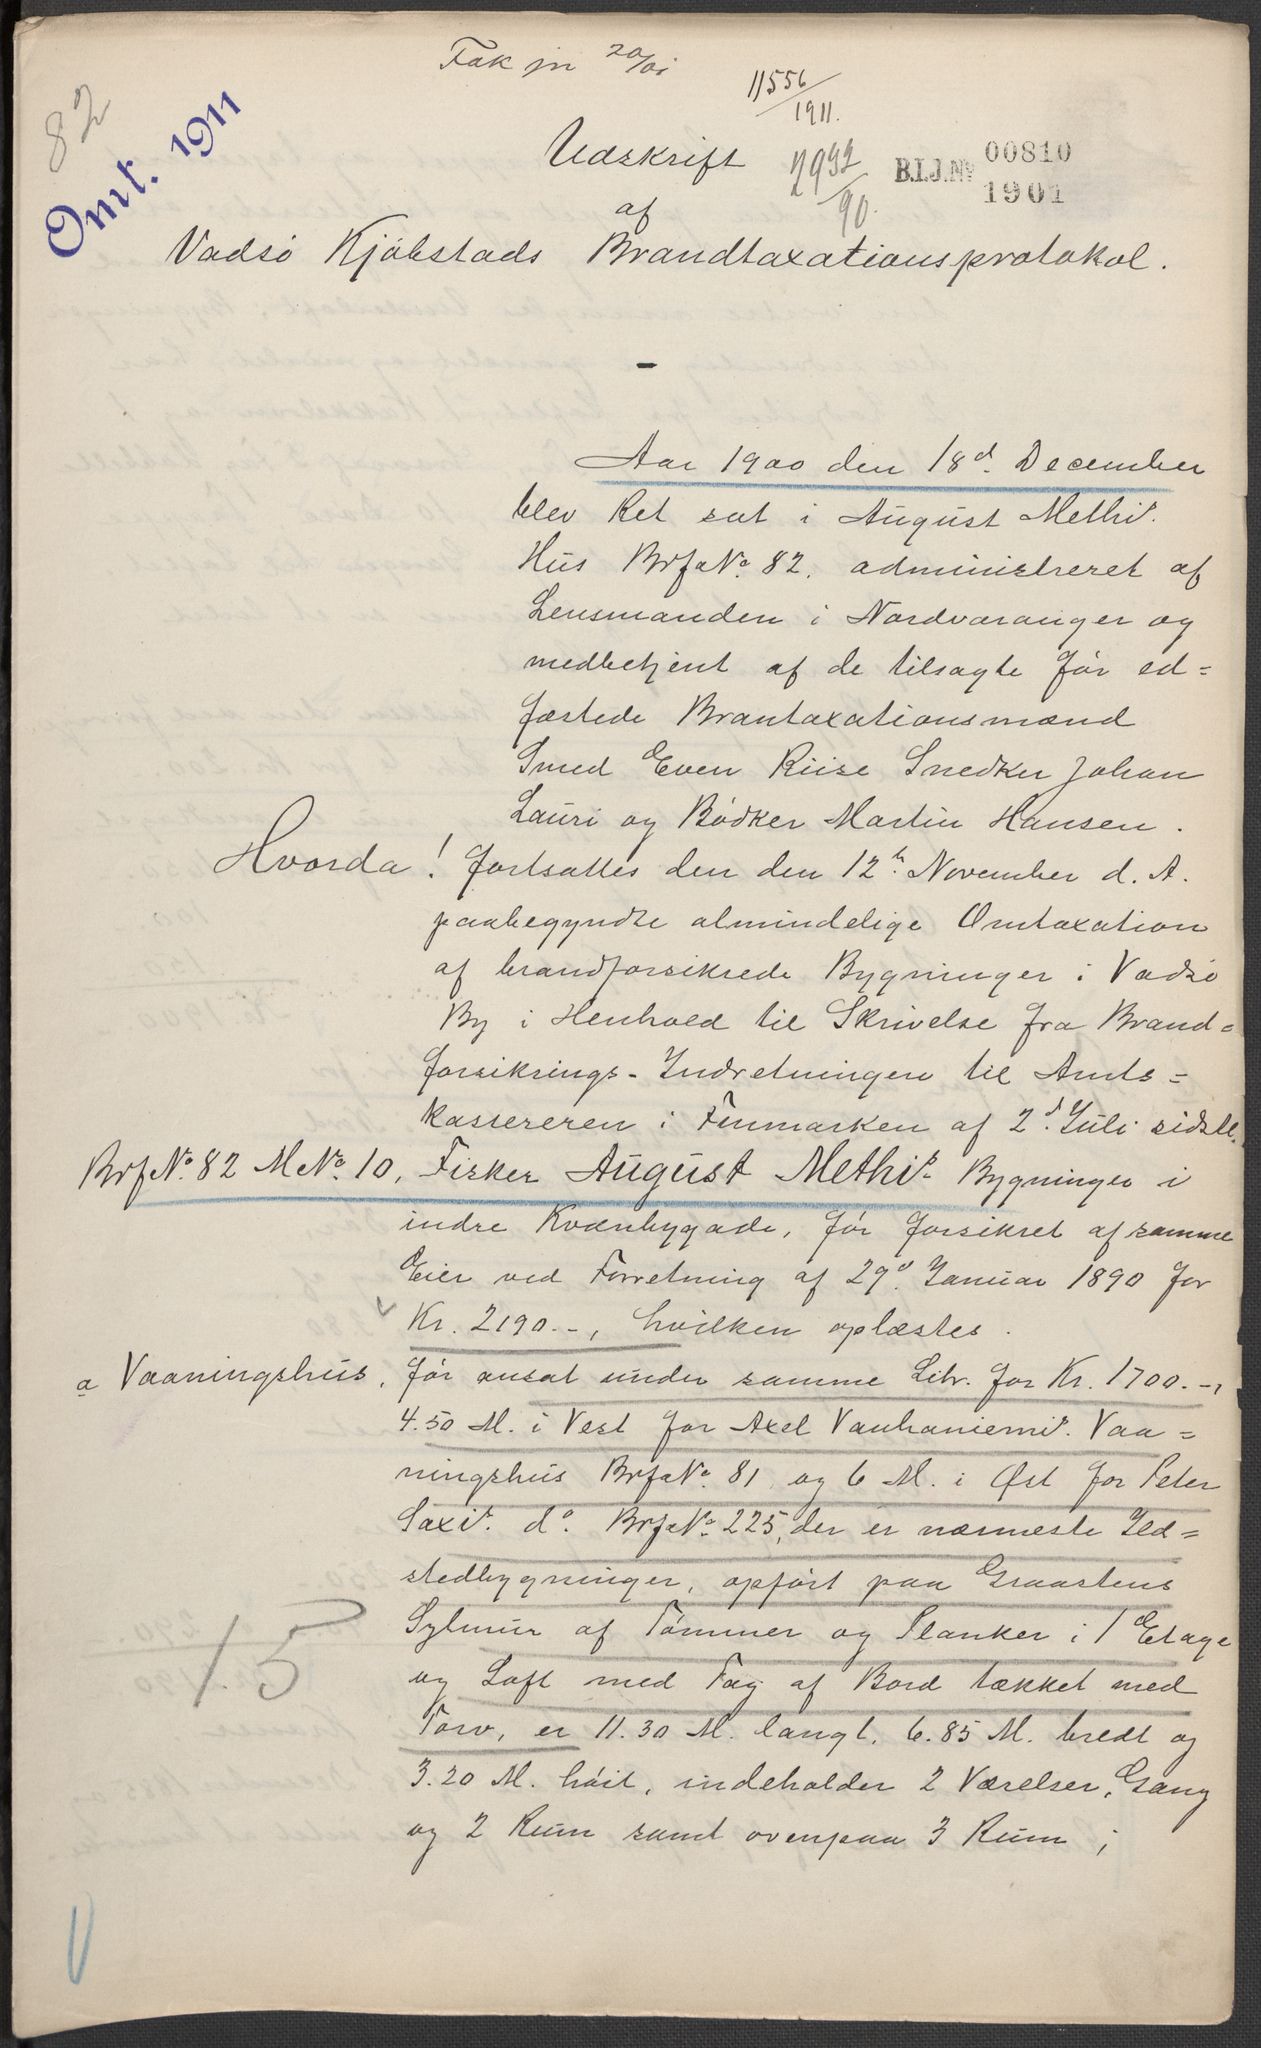 82
Omt. 1911
11556
1911.
Udskrift
2932
90.
B.I.J.No 00810
1901
af
Vadsø Kjøbstads Brandtaxationsprotokol.
Aar 1900 den 18d. December
blev Ret sat i August Methis
Hus BrfNo. 82. administreret af
Lensmanden i Nordvaranger og
medbetjent af de tilsagte før ed=
fæstede Brantaxationsmænd
Smed Even Riise Snedker Johan
Lauri og Bødker Martin Hansen.
Hvorda! fortsattes den den 12te November d. A.
paabegyndte almindelige Omtaxation
af brandforsikrede Bygninger i Vadsø
By i Henhold til Skrivelse fra Brand=
forsikrings-Indretningen til Amts=
kassereren i Finmarken af 2d. Juli sidstl.
BrfNo. 82 MNo. 10. Fisker August Methis Bygninger i
indre Kvænbygade, før forsikret af samme
Eier ved Forretning af 29d. Januar 1890 for
Kr. 2190.-, hvilken oplæstes.
a Vaaningshus, før ansat under samme Litr. for Kr. 1700.-,
4.50 M. i Vest for Axel Vanhaniemis Vaa=
ningshus BrfNo. 81 og 6 M. i Øst for Peter
Saxis do. BrfNo. 225, der er nærmeste Ild=
stedbygninger, opført paa Graastens
Sylmur af Tømmer og Planker i 1 Etage
og Loft med Tag af Bord tækket med
Torv, er 11.30 M. langt, 6.85 M. bredt og
3.20 M. høit, indeholder 2 Værelser, Gang
og 2 Rum samt ovenpaa 3 Rum;
15